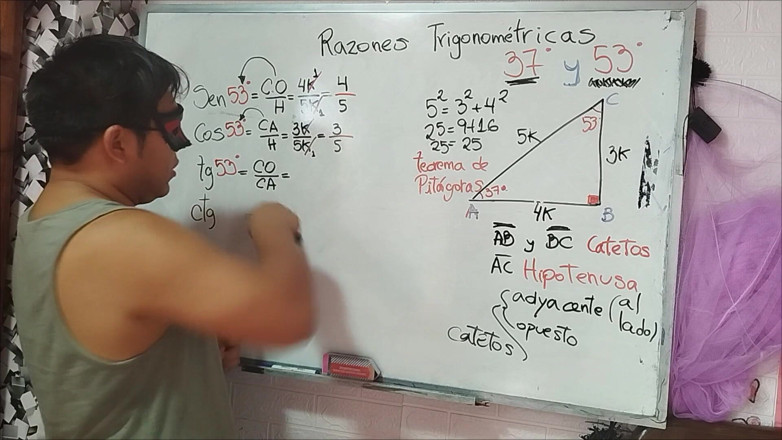 Razones Trigonométricas
37° y 53°
Sen 53° = CO/H = 4K/5K = 4/5
Cos 53° = CA/H = 3K/5K = 3/5
tg 53° = CO/CA =
ctg
5² = 3² + 4²
25 = 9+16
25 = 25
teorema de
Pitágoras
C
53
5K
3K
37°
A
4K
B
AB y BC Catetos
AC Hipotenusa
catetos
adyacente (al
lado)
opuesto